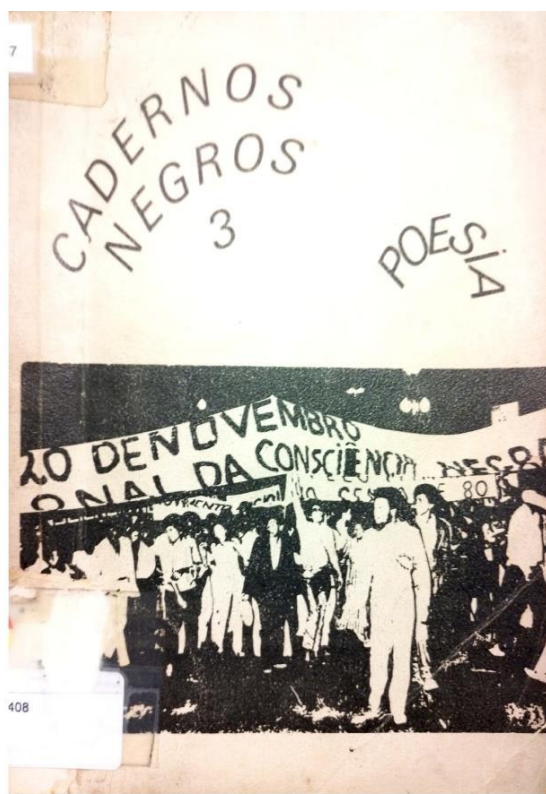 7
CADERNOS
NEGROS
3
POESiA
20 DE NOVEMBRO
ONAL DA CONSCIÊNCIA NEGR
80
408